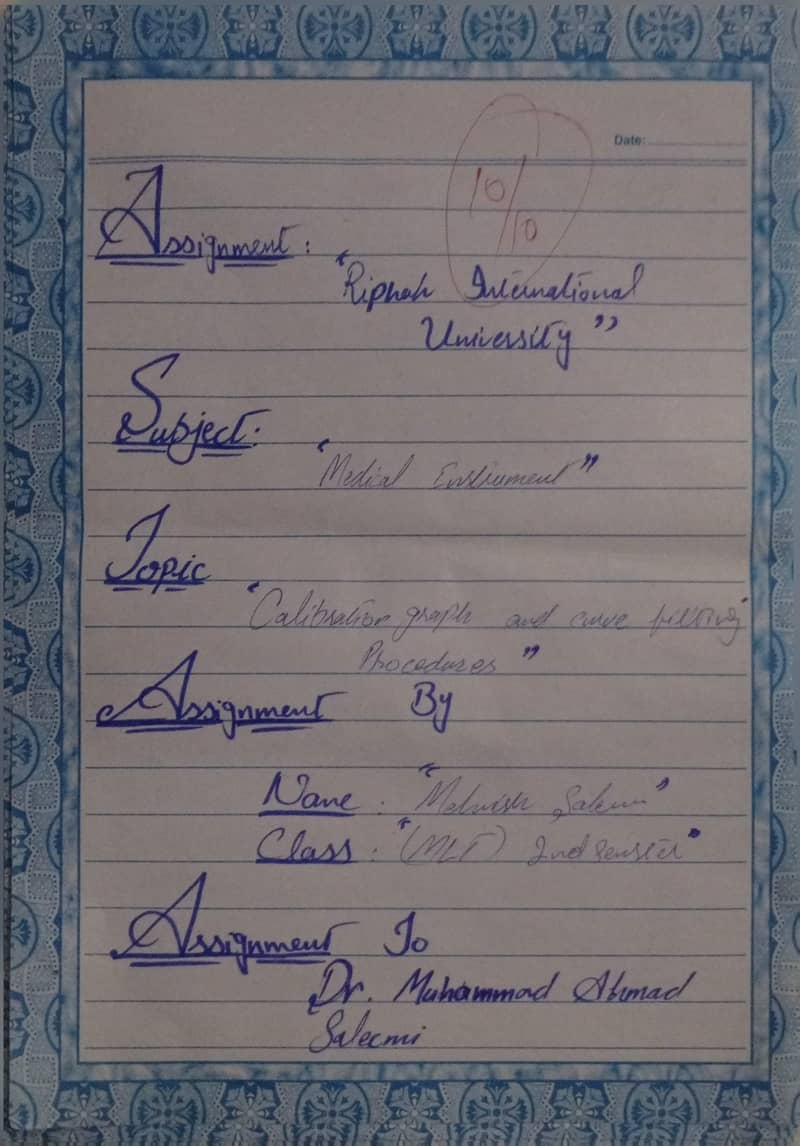 Date:
10/10
Assignment:
"Riphah International
University"
Subject:
"Medical Enstrument"
Topic
"Calibration graph and curve fitting
Procedures"
Assignment By
Name: "Mehvish Saleem"
Class: "(MLT) 2nd semster"
Assignment To
Dr. Muhammad Ahmad
Saleemi